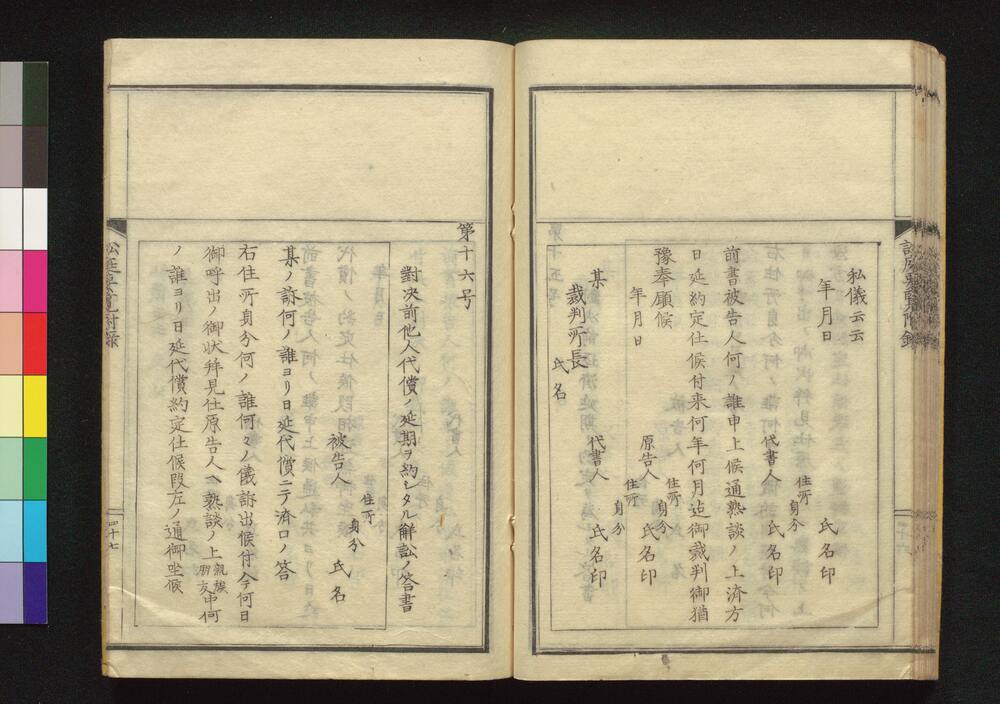 私儀云云
年月日
住所
身分
氏名印
代書人
住所
身分
氏名印
前書被告人何ノ誰申上候通熟談ノ上済方
日延約定仕候付来何年何月迄御裁判御猶
豫奉願候
年月日
原告人
住所
身分
氏名印
代書人
住所
身分
氏名印
某
裁判所長
氏名
第十六号
對決前他人代償ノ延期ヲ約シタル解訟ノ答書
住所
身分
被告人
氏名
某ノ訴何ノ誰ヨリ日延代償ニテ済口ノ答
右住所身分何ノ誰何々ノ儀訴出候付今何日
御呼出ノ御状拜見仕原告人ヘ熟談ノ上親族朋友中何
ノ誰ヨリ日延代償約定仕候段左ノ通御坐候
四十七